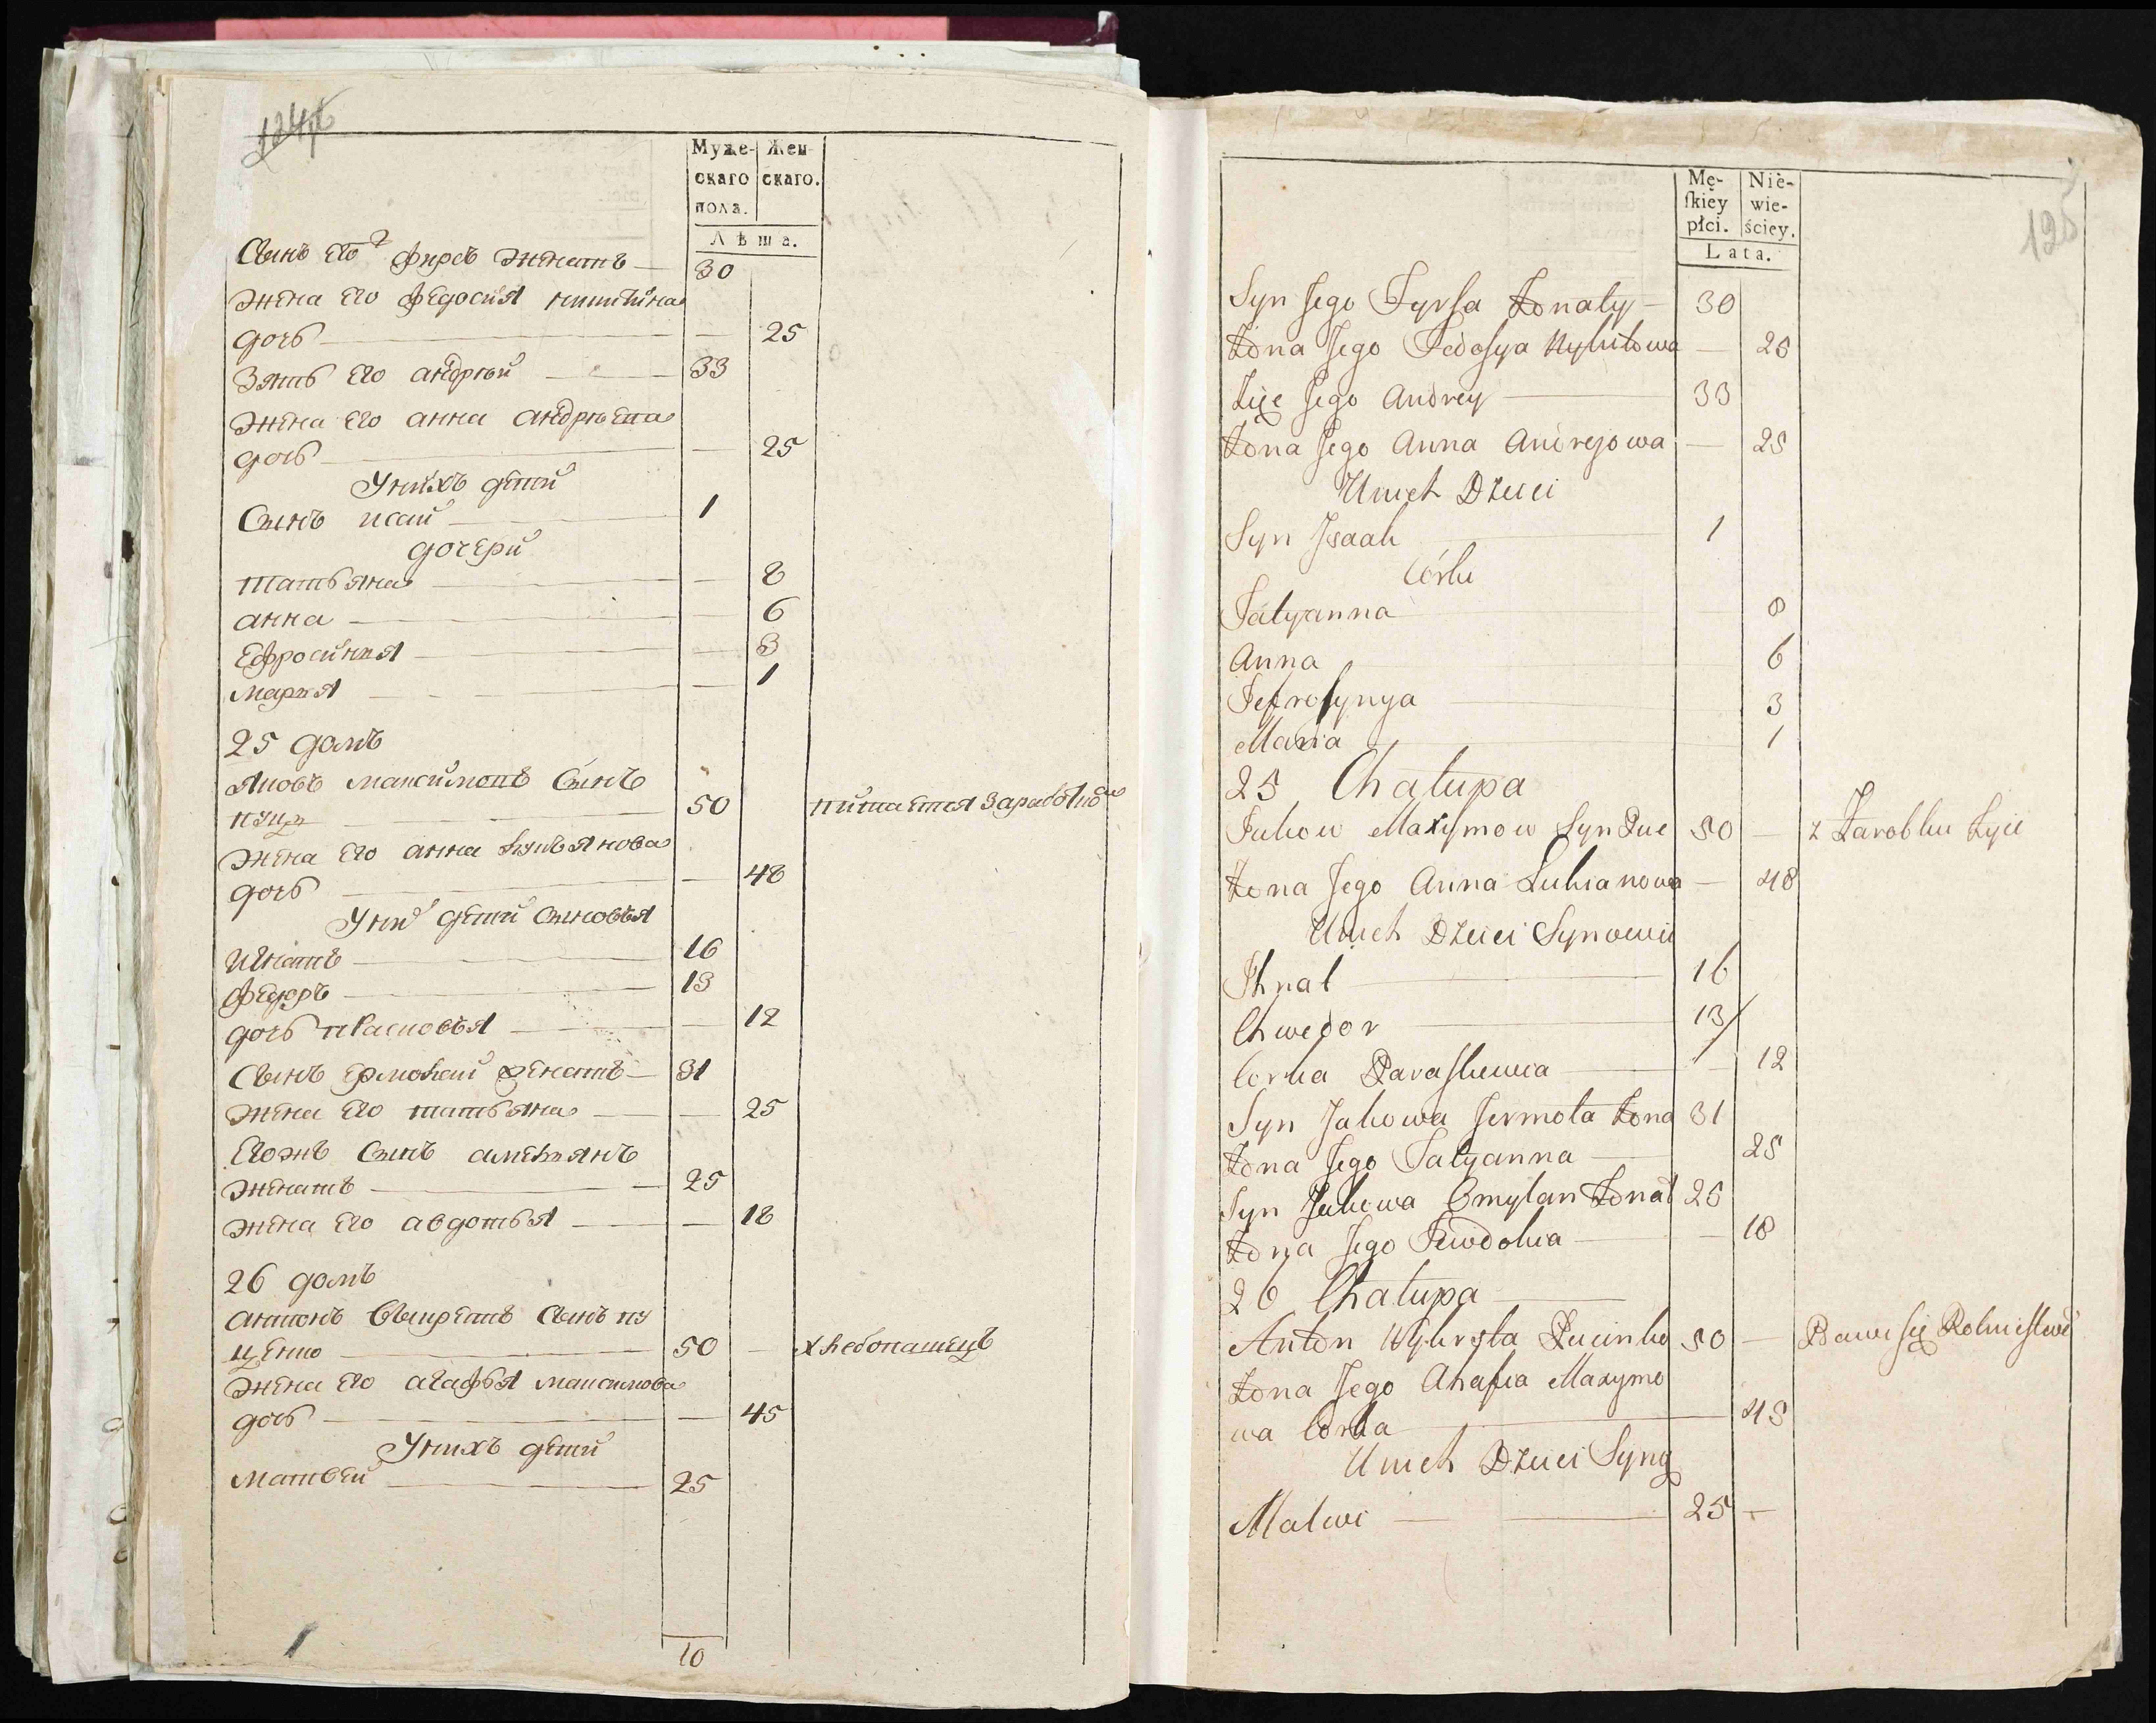 124
Муже- Жен-
скаго скаго.
пола.
Лѣта.
Сынъ его Фирсъ женатъ 30
жена его федосия никитина
дочь 25
Зять его андрѣй 33
жена его анна андрѣева
дочь 25
У нихъ дети
Сынъ исай 1
дочери
татьяна 8
анна 6
Ефросинья 3
марья 1
25 домъ
яковъ максимовъ Сынъ
куцъ 50 питается заработкою
жена его анна лукьянова
дочь 48
У них дети Сыновья
игнатъ 16
федоръ 13
дочь прасковья 12
Сынъ ермолай женатъ 31
жена его татьяна 25
Егожъ Сынъ амельянъ
женатъ 25
жена его авдотья 18
26 домъ
антонъ Сынъ ку
ценко 50 хлебопашецъ
жена его агафья максимова
дочь 45
У нихъ дети
матвей 25
10
125
Mę- Nie-
skiey wie-
płci. ściey.
Lata.
Syn Jego Fyrsa Żonaty 30
Żona Jego Fedosya Nykitowa 25
Zięc Jego Andrey 33
Żona Jego Anna Andrejowa 25
U nich Dzieci
Syn Isaak 1
Córki
Tatyanna 8
Anna 6
Jefrosynya 3
Maria 1
25 Chałupa
Jakow Maxymow Syn Kuc 50 z Zarobku żyie
Żona Jego Anna Lukianowa 48
U nich Dzieci Synowie
Ihnat 16
Chwedor 13
Corka Paraskewia 12
Syn Jakowa Jermoła Żona 31
Żona Jego Tatyanna 25
Syn Jakowa Omylan Żonat 25
Żona Jego Jewdokia 18
26 Chałupa
Anton Kucinko 50 Bawi się Rolnictwe
Żona Jego Ahafia Maxymo
wa Corka 45
U nich Dzieci Syny
Matwi 25